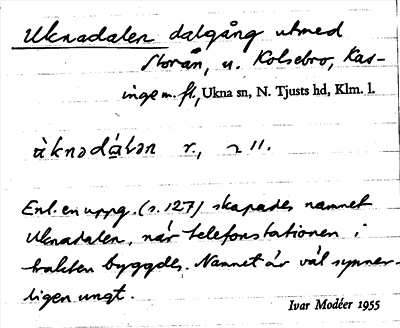 Uknadalen dalgång utmed
Storån, u. Kolsebro, Kas-
inge m. fl., Ukna sn, N. Tjusts hd, Klm. l.
ùknədá̱lən r., ~ 11.
Enl. en uppg. (s. 127) skapades namnet
Uknadalen, när telefonstationen i
trakten byggdes. Namnet är väl synner-
ligen ungt.
Ivar Modéer 1955